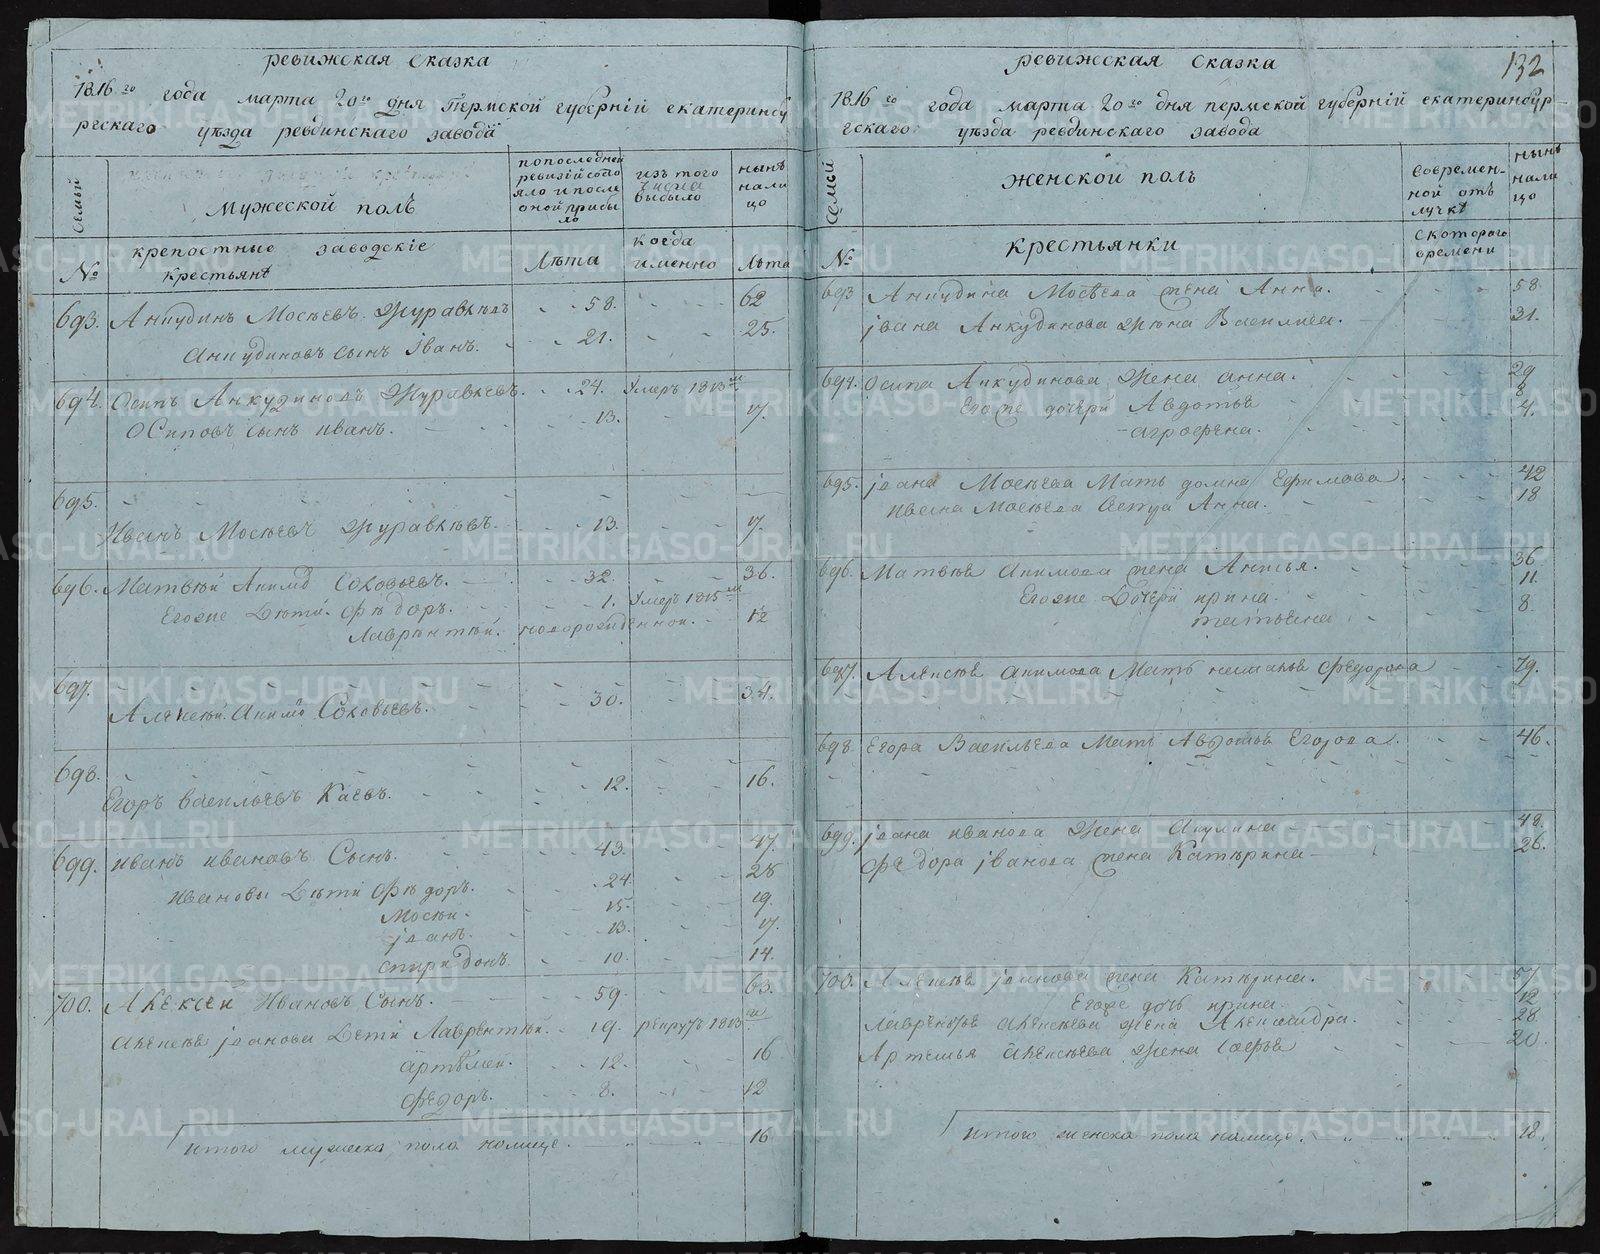 ревижская сказка
1816 го года марта 20 го дня Пермской губернiй екатеринбу
ргскаго уѣзда ревдинскаго завода
семьй
Мужеской полъ
попоследней
ревизiй состо
яло и после
оной прибы
ло
изъ того
числа
выбыло
нынѣ
нали
цо
№
крепостные заводскiе
крестьянѣ
Лѣта
когда
именно
Лѣта
693. Анкудинъ Мосѣевъ Журавлѣвъ - - 58. - - - 62
Анкудиновъ сынъ Iванъ. - - 21. - - - 25.
694. Осипъ Анкудиновъ Журавлевъ. - - 24. Умеръ 1813 м
Осиповъ сынъ иванъ. - - 13. - - 17.
695.
Иванъ Мосѣевъ Журавлѣвъ. - - 13. - - 17.
696. Матвѣй Акимо Соковьевъ. - - 32. - - 36.
Егоже Дѣти. Фѣдоръ. - - 1. Умеръ 1815 м
Лаврѣнтѣй. новорожденной. - 12
697.
Алексѣй Акимо Соковьевъ. - - 30. - - 34.
698.
Егоръ васильевъ Каевъ. - - 12. - - 16.
699. иванъ ивановъ Сынъ. - - 43. - - 47.
Ивановы Дѣти Фѣдоръ. - - 24. - - 28
Мосѣй. - - 15. - - 19.
Iванъ. - - 13. - - 17.
спиридонъ. - - 10. - - 14.
700. Алексѣй Ивановъ Сынъ. - - 59. - - 63.
Алексѣя Iванова Дети Лаврентѣй. - - 19. рекрутъ 1813
артѣмей. - - 12. - - 16
Федоръ. - - 8. - - 12
итого мужеска пола налице. - - 16
132
ревижская сказка
1816 го года марта 20 го дня пермской губернiй екатеринбур-
гскаго уѣзда ревдинскаго завода
семьй
Женской полъ
Современ-
ной отъ
лучкѣ
нынѣ
нали
цо
№
крестьянки
скотораго
времени
693 Анкудина Мосѣева жена Анна. - - 58.
Iвана Анкудинова жена Василиса. - - 31.
694. Осипа Анкудинова Жена анна. - - 29
Егоже дочери Авдотья - - 8
-агрофена. - - 4.
695. Iвана Мосѣева Мать домна Ефимова. - - 42
Ивана Мосѣева Сестра Анна. - - 18
696. Матвѣя акимова жена Анисья. - - 36
Егоже Дочери ирина. - - 11.
татьяна - - 8.
697. Алексѣя акимова Мать Федорова - - 79.
698. Егора Васильева Мать Авдотья Егорова. - - 46.
699. Iвана иванова Жена Акулина - - 48.
Федора Iванова жена Катѣрина - - 26.
700. Алексѣя Iванова жена Катѣрина. - - 57.
Егоже дочь ирина - - 12
Лаврентья алексѣева жена Александра. - - 28.
Артемья алексѣева жена Софья - - 20.
итого женска пола налице. - - 18.
METRIKI.GASO-URAL.RU